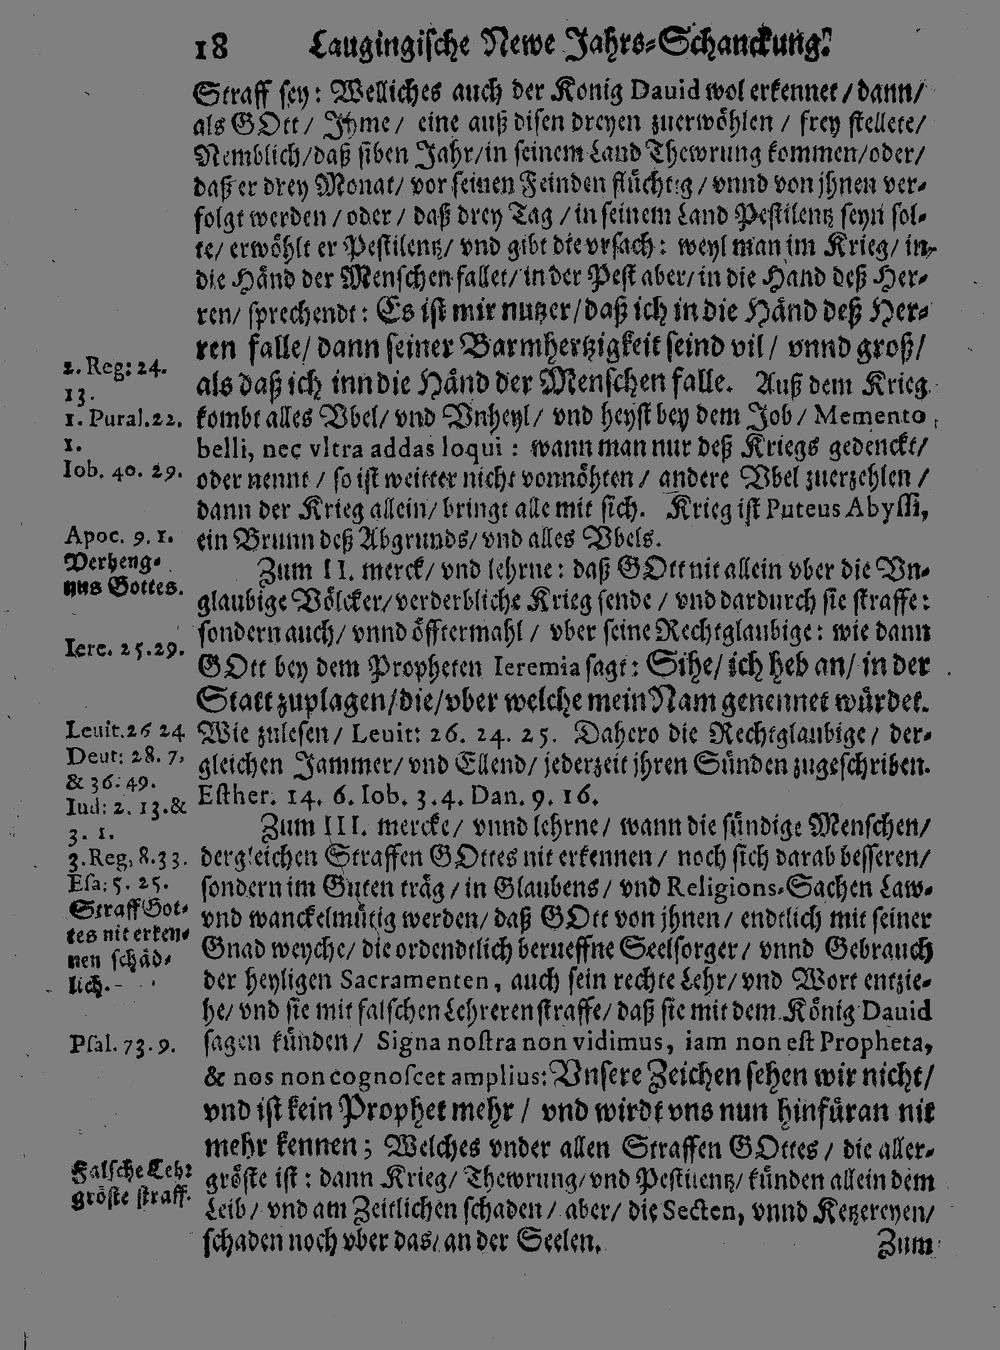 18 Laugingische Newe Jahrs-Schanckung.
Straff sey: Welliches auch der Konig Dauid wol erkennet / dann /
als GOtt / Ihme / eine auß disen dreyen zuerwöhlen / frey stellete /
Nemblich / daß siben Jahr / in seinem Land Thewrung kommen / oder /
daß er drey Monat / vor seinen Feinden flüchtig / vnnd von jhnen ver-
folgt werden / oder / daß drey Tag / in seinem Land Pestilentz seyn sol-
te / erwöhlt er Pestilentz / vnd gibt die vrsach: weyl man im Krieg / in
die Händ der Menschen fallet / in der Pest aber / in die Hand deß Her-
ren / sprechendt: Es ist mir nutzer / daß ich in die Händ deß Her-
ren falle / dann seiner Barmhertzigkeit seind vil / vnnd groß /
2. Reg: 24.
13.
als daß ich inn die Händ der Menschen falle. Auß dem Krieg
1. Pural. 22.
1.
kombt alles Vbel / vnd Vnheyl / vnd heyst bey dem Job / Memento
belli, nec vltra addas loqui: wann man nur deß Kriegs gedenckt /
Iob. 40. 29.
oder nennt / so ist weitter nicht vonnöhten / andere Vbel zuerzehlen /
dann der Krieg allein / bringt alle mit sich. Krieg ist Puteus Abyssi,
Apoc. 9. 1.
ein Brunn deß Abgrunds / vnd alles Vbels.
Verheng-
nus Gottes.
Zum II. merck / vnd lehrne: daß GOtt nit allein vber die Vn-
glaubige Völcker / verderbliche Krieg sende / vnd dardurch sie straffe:
sondern auch / vnnd öfftermahl / vber seine Rechtglaubige: wie dann
Iere. 25. 29.
GOtt bey dem Propheten Ieremia sagt: Sihe / ich heb an / in der
Statt zuplagen / die / vber welche mein Nam genennet würdet.
Leuit. 26 24
Wie zulesen / Leuit: 26. 24. 25. Dahero die Rechtglaubige / der-
Deut: 28. 7,
& 36. 49.
gleichen Jammer / vnd Ellend / jederzeit jhren Sünden zugeschriben.
Iud: 2. 13. &
3. 1.
Esther. 14. 6. Iob. 3. 4. Dan. 9. 16.
Zum III. mercke / vnnd lehrne / wann die sündige Menschen /
3. Reg, 8. 33.
dergleichen Straffen GOttes nit erkennen / noch sich darab besseren /
Esa: 5. 25.
sondern im Guten träg / in Glaubens / vnd Religions-Sachen Law-
Straff Got-
tes nit erken-
nen schäd-
lich.
vnd wanckelmütig werden / daß GOtt von jhnen / endtlich mit seiner
Gnad weyche / die ordendtlich berueffne Seelsorger / vnnd Gebrauch
der heyligen Sacramenten, auch sein rechte Lehr / vnd Wort entzie-
he / vnd sie mit falschen Lehreren straffe / daß sie mit dem König Dauid
Psal. 73. 9.
sagen künden / Signa nostra non vidimus, iam non est Propheta,
& nos non cognoscet amplius: Vnsere Zeichen sehen wir nicht /
vnd ist kein Prophet mehr / vnd wirdt vns nun hinfüran nit
mehr kennen; Welches vnder allen Straffen GOttes / die aller-
Falsche Lehr
gröste straff.
gröste ist: dann Krieg / Thewrung / vnd Pestilentz / künden allein dem
Leib / vnd am Zeitlichen schaden / aber / die Secten, vnnd Ketzereyen /
schaden noch vber das / an der Seelen.
Zum